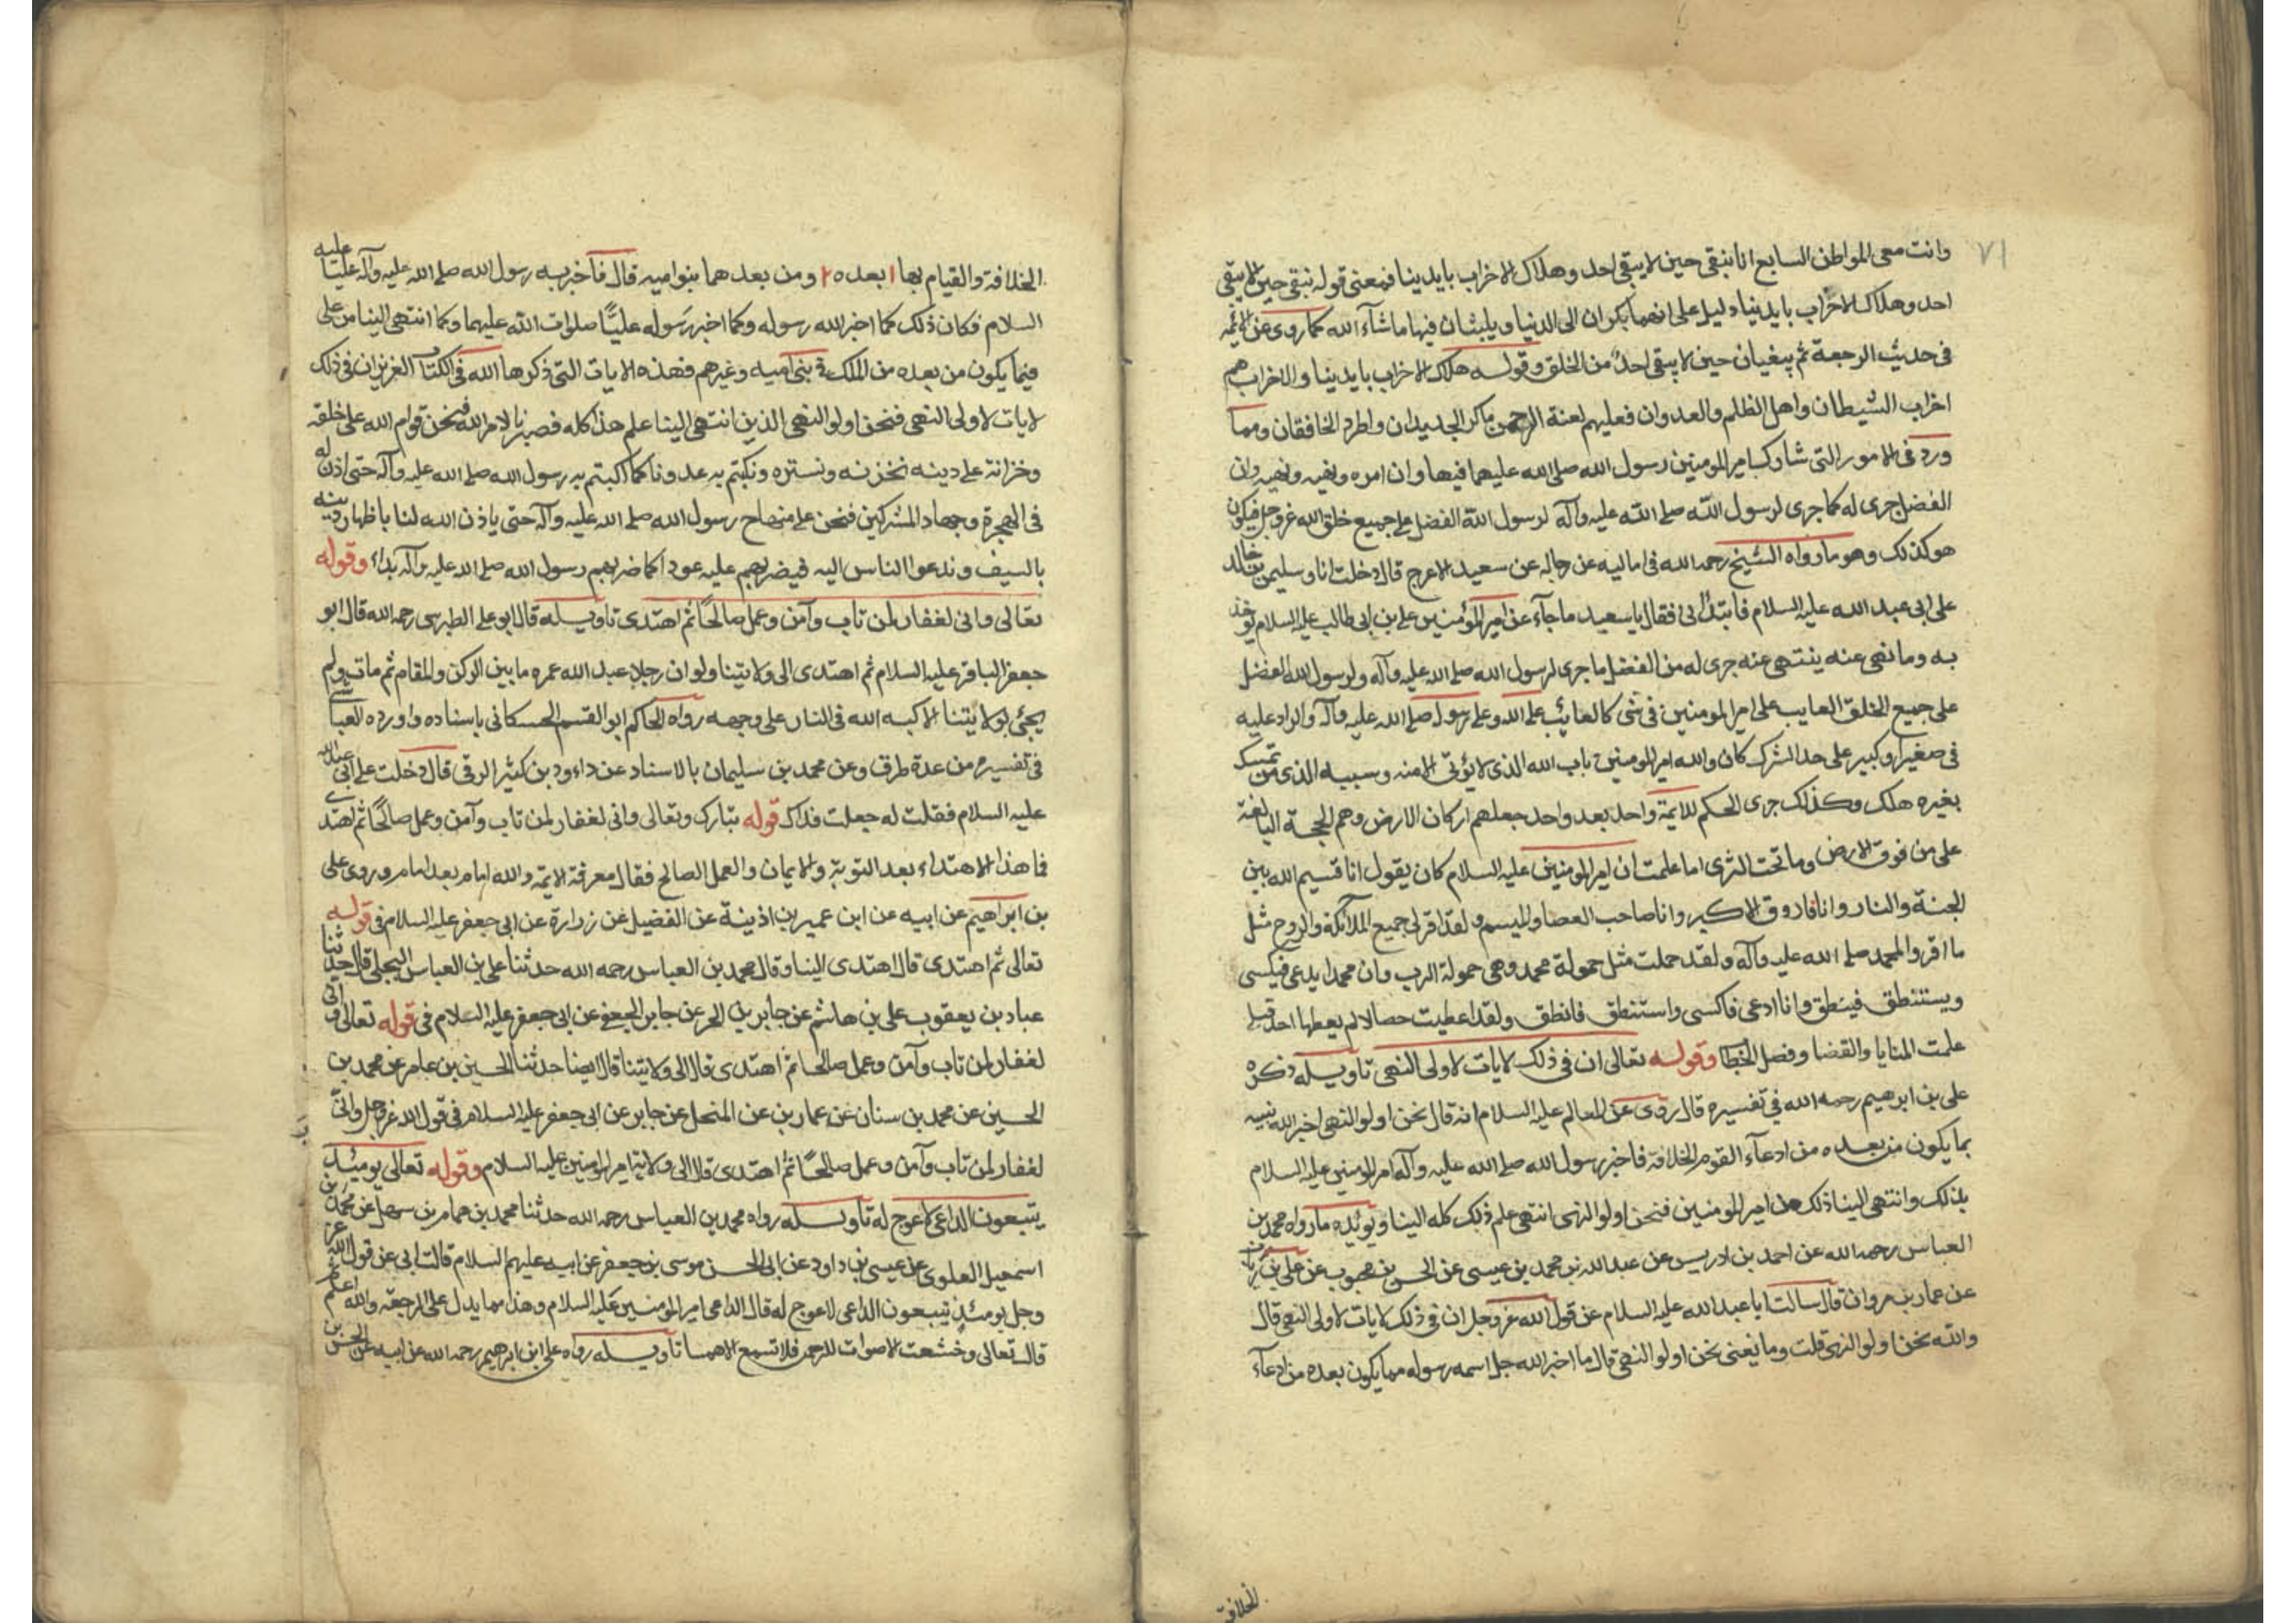 ٧١
وانت معى المواطن السابع انا نبقى حين لا يبقى احد وهلاك الاحزاب بايدينا فمعنى قوله نبقى حين لا يبقى
احد وهلاك الاحزاب بايدينا دليل على انهما يكران الى الدنيا ويلبثان فيها ما شآء الله كما روى عن الائمه
فى حديث الرجعة ثم يبقيان حين لا يبقى احدٌ من الخلق وقوله هلاك الاحزاب بايدينا والاحزاب هم
احزاب الشيطان واهل الظلم والعدوان فعليهم لعنة الرحمن ما كر الجديدان واطرد الخافقان ومما
ورد فى الامور التى شارك امير المومنين رسول الله صلى الله عليهما فيها وان امره ونهيه ونهيه وان
الفضل جرى له كما جرى لرسول الله صلى الله عليه وآله لرسول الله الفضل على جميع خلق الله عز وجل فيكون
هو كذلك وهو ما رواه الشيخ رحمه الله فى اماليه عن رجاله عن سعيد الاعرج قال دخلت انا وسليمن بن خالد
على ابى عبد الله عليه السلام فابتدانى فقال يا سعيد ما جآء عن امير المؤمنين على بن ابى طالب عليه السلام يوخذ
به وما نهى عنه ينتهى عنه جرى له من الفضل ما جرى لرسول الله صلى الله عليه وآله ولرسول الله الفضل
على جميع الخلق العايب على امير المومنين فى شى كالعائب على الله وعلى رسوله صلى الله عليه وآله والراد عليه
فى صغير او كبير على حد الشرك كان والله امير المومنين باب الله الذى لا يؤتى الا منه وسبيله الذى من تمسك
بغيره هلك وكذلك جرى الحكم للائمة واحد بعد واحد جعلهم اركان الارض وهم الحجة البالغة
على من فوق الارض وما تحت الثرى اما علمت ان امير المومنين عليه السلام كان يقول انا قسيم الله بين
الجنة والنار وانا فاروق الاكبر وانا صاحب العصا والميسم ولقد اقر لى جميع الملائكة والروح مثل
ما اقروا لمحمد صلى الله عليه وآله ولقد حملت مثل حمولة محمد وهى حمولة الرب وان محمدا يدعى فيكسى
ويستنطق فينطق وانا ادعى فاكسى واستنطق فانطق ولقد اعطيت خصالا لم يعطها احد قبلى
علمت المنايا والقضا وفصل الخطا وقوله تعالى ان فى ذلك لايات لاولى النهى تاويله ذكره
على بن ابرهيم رحمه الله فى تفسيره قال روى عن العالم عليه السلام انه قال نحن اولو النهى اخبر الله نبيه
بما يكون من بعده من ادعآء القوم الخلافة فاخبر رسول الله صلى الله عليه وآله امير المومنين عليه السلام
بذلك وانتهى الينا ذلك من امير المومنين فنحن اولو النهى انتهى علم ذلك كله الينا ويؤيده ما رواه محمد بن
العباس رحمه الله عن احمد بن ادريس عن عبد الله بن محمد بن عيسى عن الحسن بن محبوب عن على بن رئاب
عن عمار بن مروان قال سالت ابا عبد الله عليه السلام عن قول الله عز وجل ان فى ذلك لايات لاولى النهى قال
والله نحن اولو النهى قلت وما يعنى نحن اولو النهى قال ما اخبر الله جل اسمه رسوله مما يكون بعده من ادعآء
الخلافة
الخلافة والقيام بها ١ بعده ٢ ومن بعدهما بنو اميه قال فاخبر به رسول الله صلى الله عليه وآله عليّا عليه
السلام فكان ذلك كما اخبر الله رسوله وكما اخبر رسوله عليًّا صلوات الله عليهما وكما انتهى الينا من على
فيما يكون من بعده من الملك فى بنى اميه وغيرهم فهذه الايات التى ذكرها الله فى الكتاب العزيز ان فى ذلك
لايات لاولى النهى فنحن اولو النهى الذين انتهى الينا علم هذا كله فصبرنا لامر الله فنحن قوام الله على خلقه
وخزانه على دينه نخزنه ونستره ونكتتم به عدونا كما اكتتم به رسول الله صلى الله عليه وآله حتى اذن له
فى الهجرة وجهاد المشركين فنحن على منهاج رسول الله صلى الله عليه وآله حتى ياذن الله لنا باظهار دينه
بالسيف وندعوا الناس اليه فيضربهم عليه عودا كما ضربهم رسول الله صلى الله عليه وآله بداء وقوله
تعالى وانى لغفار لمن تاب وآمن وعمل صالحًا ثم اهتدى تاويله قال ابو على الطبرسى رحمه الله قال ابو
جعفر الباقر عليه السلام ثم اهتدى الى ولايتنا ولو ان رجلا عبد الله عمره ما بين الركن والمقام ثم مات ولم
يجئ بولايتنا الا كبه الله فى النار على وجهه رواه الحاكم ابو القسم الحسكانى باسناده واورده العياشى
فى تفسيره من عدة طرق وعن محمد بن سليمان بالاسناد عن داود بن كثير الرقى قال دخلت على ابى عبد الله
عليه السلام فقلت له جعلت فداك قوله تبارك وتعالى وانى لغفار لمن تاب وآمن وعمل صالحًا ثم اهتدى
فما هذا الاهتداء بعد التوبة والايمان والعمل الصالح فقال معرفة الائمة والله امام بعد امام وروى على
بن ابراهيم عن ابيه عن ابن عمير بن اذينة عن الفضيل عن زرارة عن ابى جعفر عليه السلام فى قوله
تعالى ثم اهتدى قال اهتدى الينا وقال محمد بن العباس رحمه الله حدثنا على بن العباس البجلى قال حدثنا
عباد بن يعقوب على بن هاشم عن جابر بن الحر عن جابر الجعفى عن ابى جعفر عليه السلام فى قوله تعالى وانى
لغفار لمن تاب وآمن وعمل صالحا ثم اهتدى قال الى ولايتنا قال ايضا حدثنا الحسين بن عامر عن محمد بن
الحسين عن محمد بن سنان عن عمار بن عن المنخل عن جابر عن ابى جعفر عليه السلام فى قول الله عز وجل وانّى
لغفار لمن تاب وآمن وعمل صالحًا ثم اهتدى قال الى ولاية امير المومنين عليه السلام وقوله تعالى يومئذ
يتبعون الداعى لا عوج له تاويله رواه محمد بن العباس رحمه الله حدثنا محمد بن همام بن سهيل عن محمد بن
اسمعيل العلوى عن عيسى بن داود عن ابى الحسن موسى بن جعفر عن ابيه عليهم السلام قالت ابى عن قول الله عز
وجل يومئذٍ يتبعون الداعى لا عوج له قال الداعى امير المومنين عليه السلام وهذا مما يدل على الرجعة والله اعلم
قال تعالى وخشعت الاصوات للرحمن فلا تسمع الا همسا تاويله رواه على ابن ابرهيم رحمه الله عن ابيه عن الحسن بن